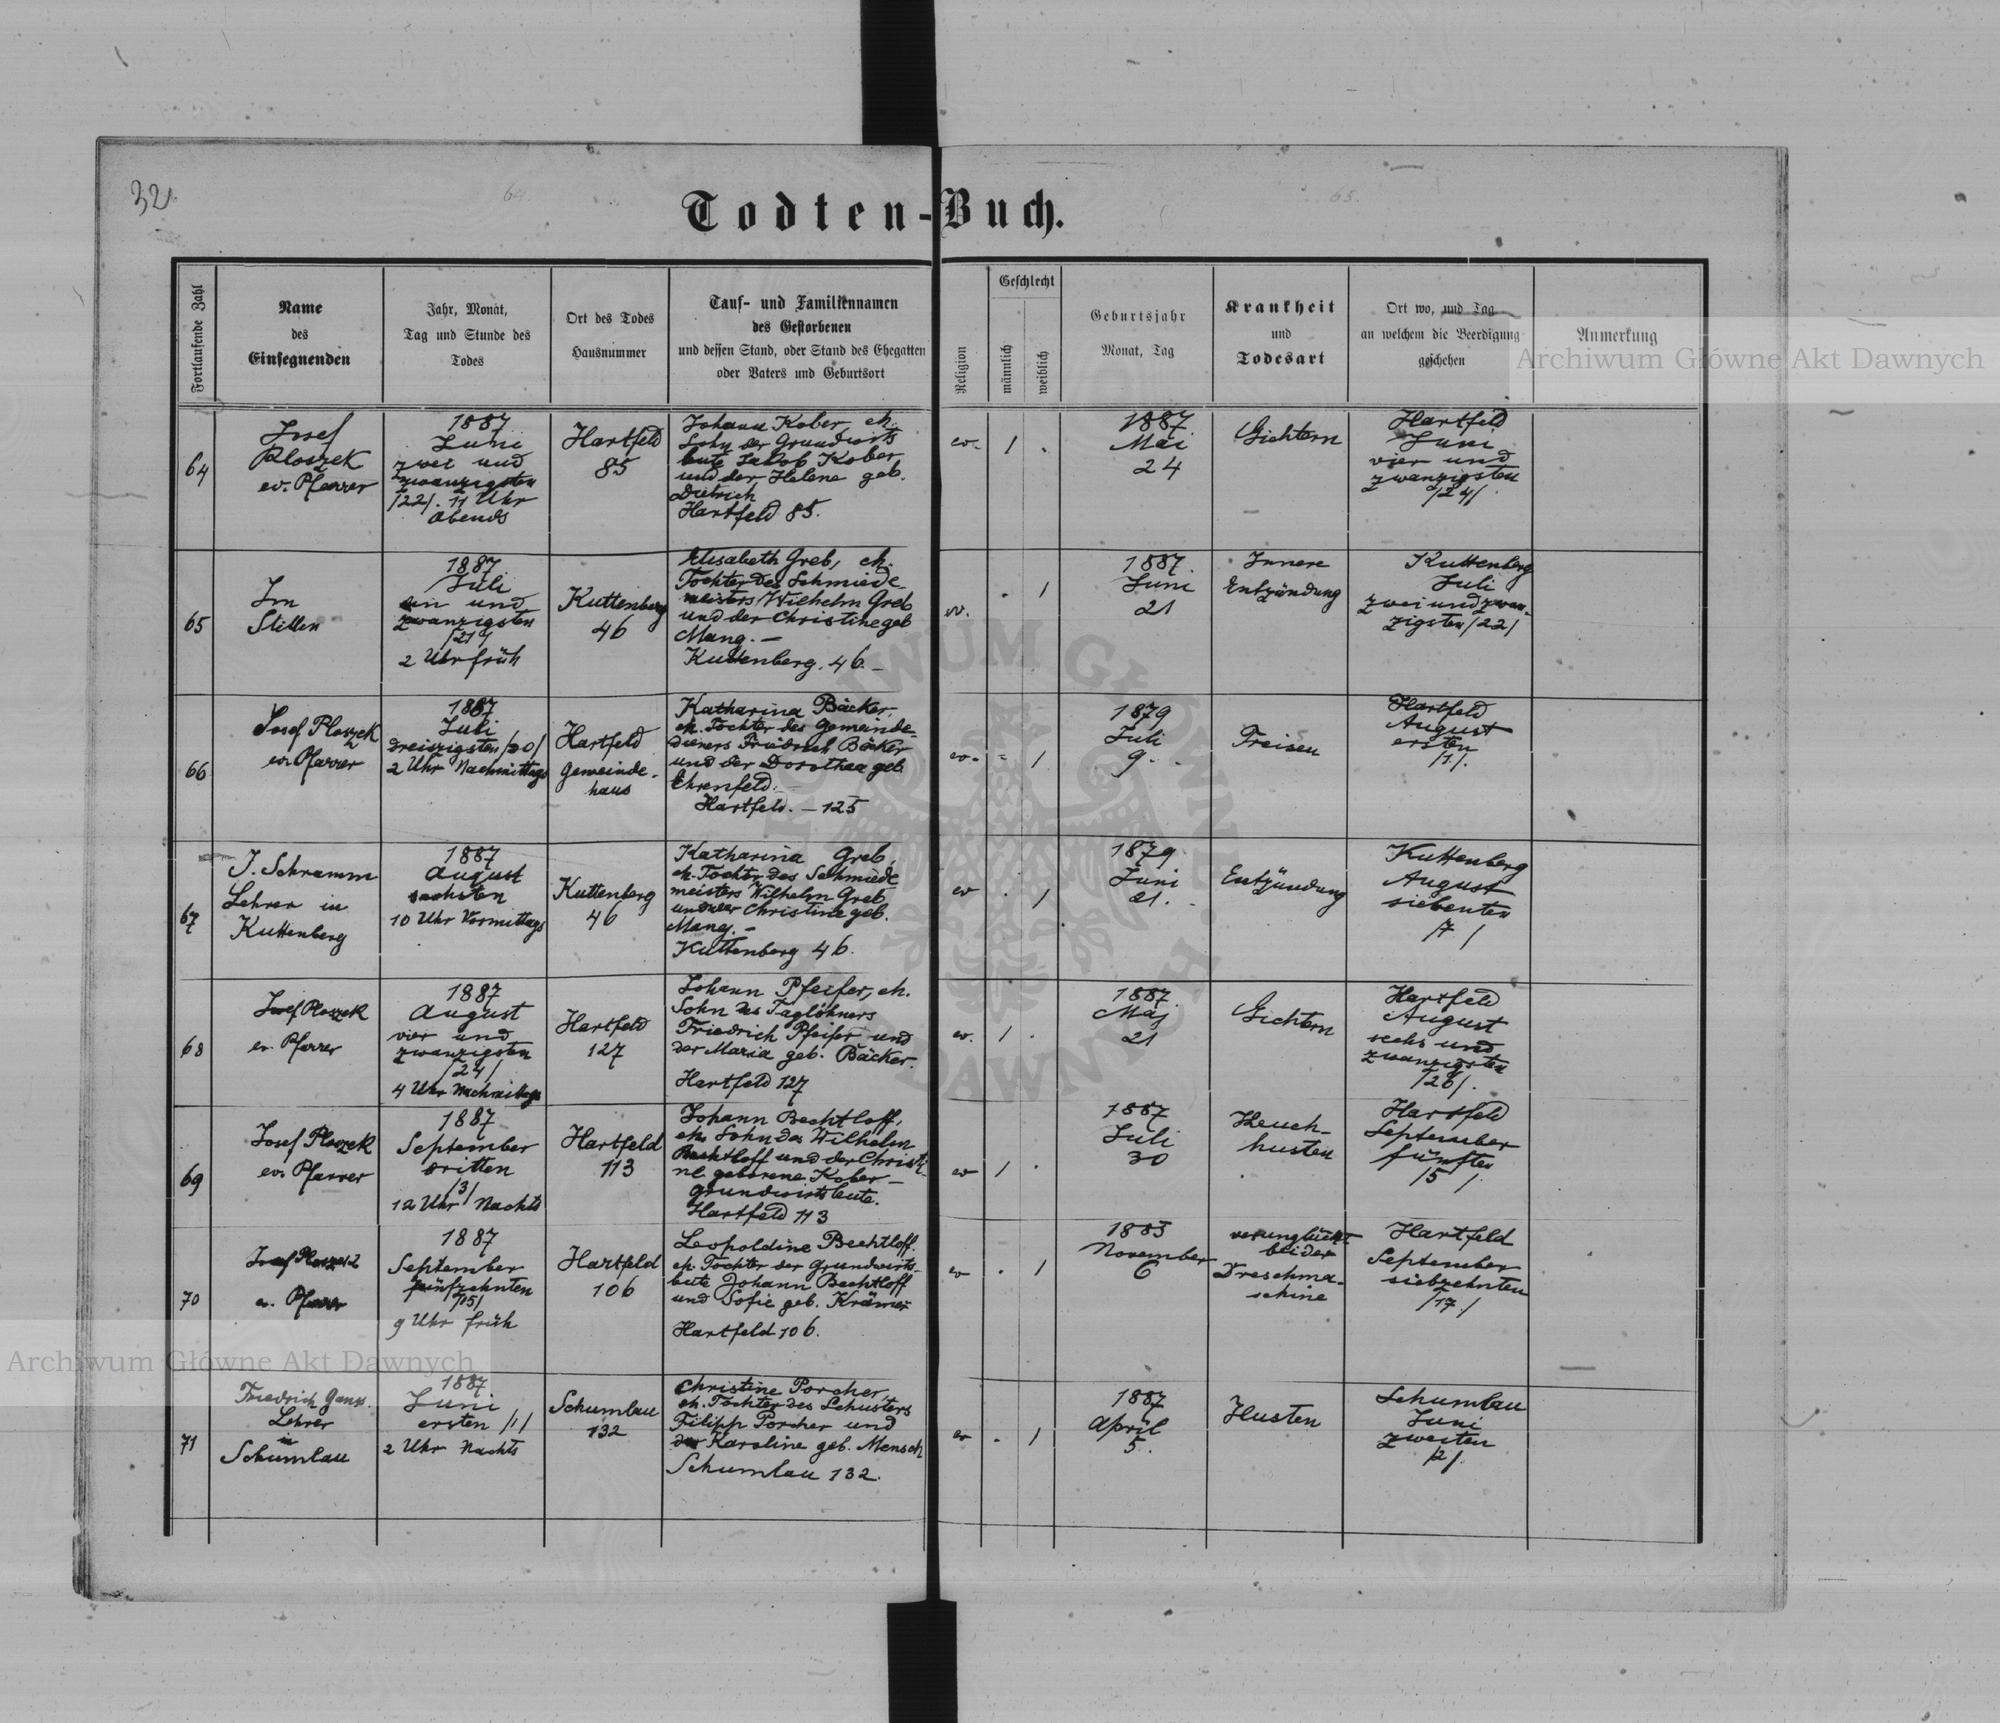 32.
64.
65.
Todten-Buch.
Fortlaufende Zahl
Name
des
Einsegnenden
Jahr, Monat,
Tag und Stunde des
Todes
Ort des Todes
Hausnummer
Tauf- und Familiennamen
des Gestorbenen
und dessen Stand, oder Stand des Ehegatten
oder Vaters und Geburtsort
Religion
Geschlecht
männlich
weiblich
Geburtsjahr
Monat, Tag
Krankheit
und
Todesart
Ort wo, und Tag
an welchem die Beerdigung
geschehen
Anmerkung
Archiwum Główne Akt Dawnych
64
Josef
Ploszek
ev. Pfarrer
1887
Juni
zwei und
zwanzigsten
/22/. 11 Uhr
abends
Hartfeld
85
Johann Kober, eh.
Sohn der Grundwirts
leute Jakob Kober
und der Helene geb.
Dietrich
Hartfeld 85.
ev.
/
.
1887
Mai
24
Gichtern
Hartfeld
Juni
vier und
zwanzigsten
/24/.
65
Im
Stillen
1887
Juli
ein und
zwanzigsten
/21/
2 Uhr früh
Kuttenberg
46
Elisabeth Greb, eh.
Tochter des Schmiede
meisters Wilhelm Greb
und der Christine geb
Mang. –
Kuttenberg. 46. –
ev.
.
/
1887.
Juni
21
Innere
Entzündung
Kuttenberg
Juli
zwei und zwan-
zigsten /22/
66
Josef Ploszek
ev. Pfarrer
1887
Juli
dreizigsten /30/
2 Uhr Nachmittags
Hartfeld
Gemeinde-
haus
Katharina Bäcker,
eh. Tochter des Gemeinde-
dieners Friedrich Bäcker
und der Dorothea geb
Ehrenfeld.
Hartfeld. – 125
ev.
-
/
1879
Juli
9.
Freisen
Hartfeld
August
ersten
/1/.
67
J. Schramm
Lehrer in
Kuttenberg
1887
August
sechsten
10 Uhr Vormittags
Kuttenberg
46
Katharina Greb,
eh. Tochter des Schmiede
meisters Wilhelm Greb
und der Christine geb.
Mang. –
Kuttenberg 46.
ev
.
/
1879
Juni
21.
Entzündung
Kuttenberg
August
siebenten
/7/
68
Josef Ploszek
ev. Pfarrer
1887
August
vier und
zwanzigsten
/24/
4 Uhr Nachmittags
Hartfeld
127
Johann Pfeifer, eh.
Sohn des Taglöhners
Friedrich Pfeifer und
der Maria geb. Bäcker.
Hartfeld 127
ev.
/
.
1887
Maj
21
Gichtern
Hartfeld
August
sechs und
zwanzigsten
/26/.
69
Josef Ploszek
ev. Pfarrer
1887
September
dritten
/3/
12 Uhr Nachts
Hartfeld
113
Johann Bechtloff,
ehe. Sohn des Wilhelm
Bechtloff und der Christi-
ne geborene Kober –
Grundwirtsleute.
Hartfeld 113
ev
/
.
1887
Juli
30
Keuch-
husten
Hartfeld
September
fünften
/5/
70
Josef Ploszek
ev. Pfarrer
1887
September
fünfzehnten
/15/
9 Uhr früh
Hartfeld
106
Leopoldine Bechtloff.
eh. Tochter der Grundwirts-
leute Johann Bechtloff
und Sofie geb. Krämer
Hartfeld 106.
ev
.
/
1883
November
6
verunglückt
bei der
Dreschma-
schine
Hartfeld
September
siebzehnten
/17/
71
Friedrich
Lehrer
in
Schumlau
1887
Juni
ersten /1/
2 Uhr Nachts
Schumlau
132
Christine Porcher,
eh. Tochter des Schusters
Filipp Porcher und
der Karoline geb. Mensch
Schumlau 132.
ev
.
/
1887
April
5.
Husten
Schumlau
Juni
zweiten
/2/.
Archiwum Główne Akt Dawnych